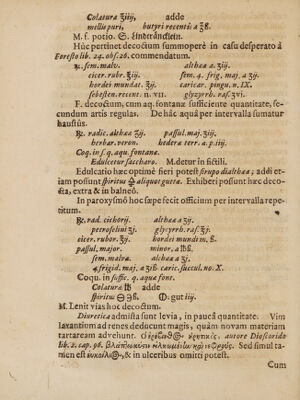 Colatura ℥iij, adde
mellis puri, butyri recentis a ℥ß.
M. f. potio. S.
Huc pertinet decoctum summoperè in casu desperato à
Foresto lib. 24. obs. 26. commendatum.
℞. sem. malv. althææ a ʒij.
cicer. rubr. ℥iij. sem. 4. frig. maj. a ʒij.
hordei mundat. ʒij. caricar. pingu. n. IX.
sebesten. recent. n. VII. glycyrrh. ras. ʒvi.
F. decoctum, cum aq. fontanæ sufficiente quantitate, se-
cundum artis regulas. De hâc aquâ per intervalla sumatur
haustus.
℞. radic. althææ ℥j. passul. maj. ℥iij.
herbar. veron. hedera terr. a. p. iij.
Coq. in s. q. aqu. fontana.
Edulcetur saccharo. M. detur in fictili.
Edulcatio hæc optimè fieri potest syrupo dialthææ; addi et-
iam possunt spiritus aliquot gutta. Exhiberi possunt hæc deco-
cta, extra & in balneô.
In paroxysmô hoc sæpe fecit officium per intervalla repe-
titum.
℞. rad. cichorij. althææ a ʒij.
petroselini ʒj. glycyrrh. ras. ʒj.
cicer. rubor. ℥ij. hordei mundi m. ß.
passul. major. minor. a lb ß.
sem. malva. althææ a ʒj.
4. frigid. maj. a ʒiß. caric. succul. no. X.
Coqu. in suffic. q. aqua font.
Colatura lb adde
spiritus gut iij.
M. Lenit vias hoc decoctum.
Diuretica admista sunt levia, in paucâ quantitate. Vim
laxantium ad renes deducunt magis, quàm novam materiam
tartaream advehunt. autore Dioscorido
lib. 2. cap. 98. Sed simul ta-
men est & in ulceribus omitti potest.
Cum